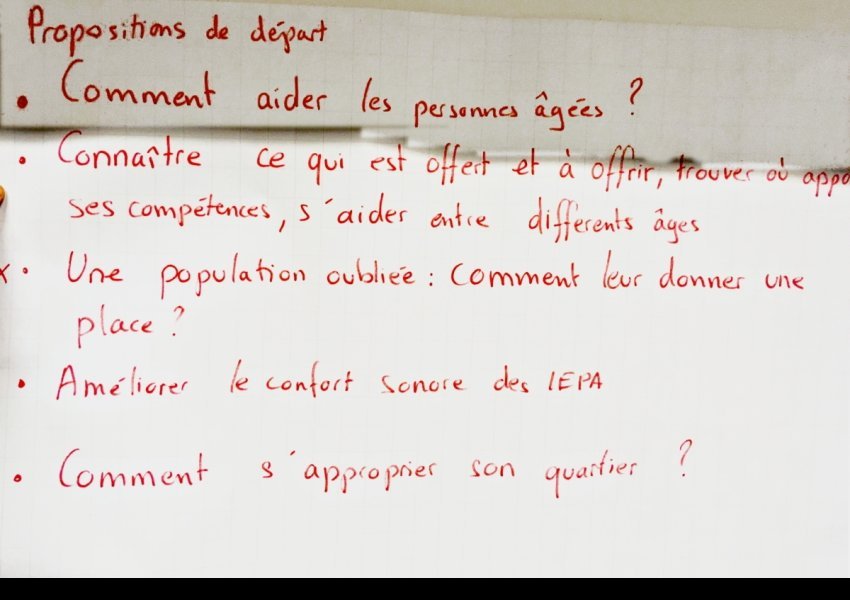 Propositions de départ
• Comment aider les personnes âgées ?
• Connaître ce qui est offert et à offrir, trouver où appo
ses compétences, s'aider entre différents âges
x • Une population oubliée : Comment leur donner une
place ?
• Améliorer le confort sonore des IEPA
• Comment s'approprier son quartier ?